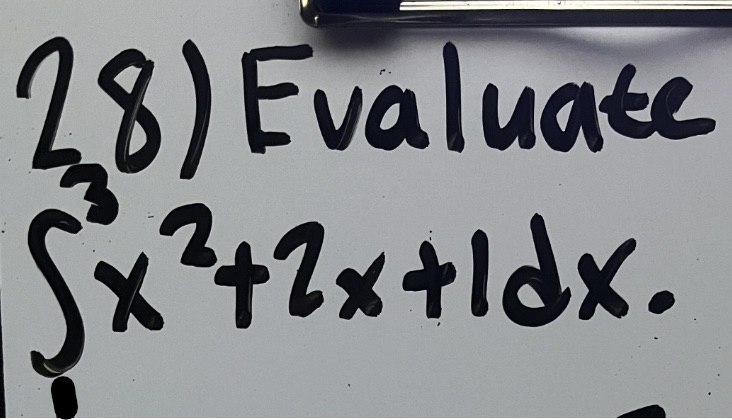 28) Evaluate
∫³ x²+2x+1dx.